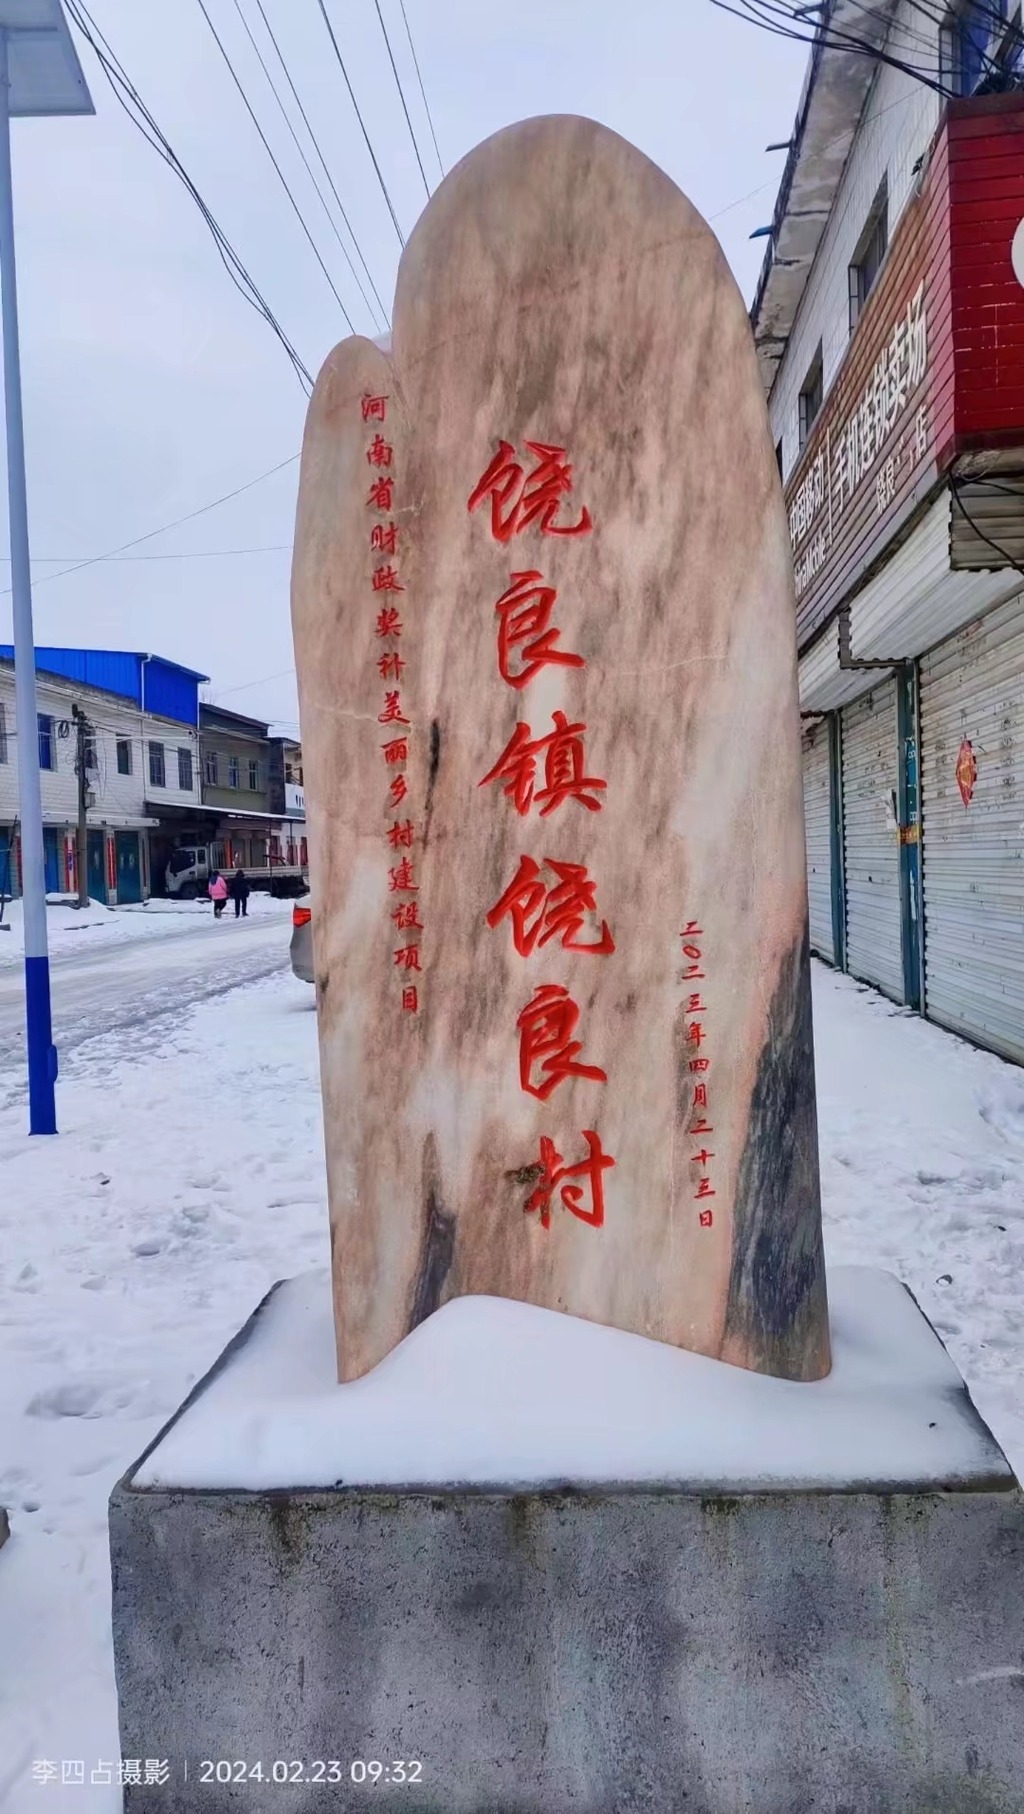 河南省财政奖补美丽乡村建设项目
饶良镇饶良村
二〇二三年四月二十三日
中国移动 手机连锁卖场
China Mobile
店
李四占摄影 2024.02.23 09:32